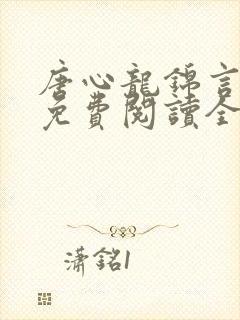 唐心龍錦言
免費閱讀全
瀟銘1